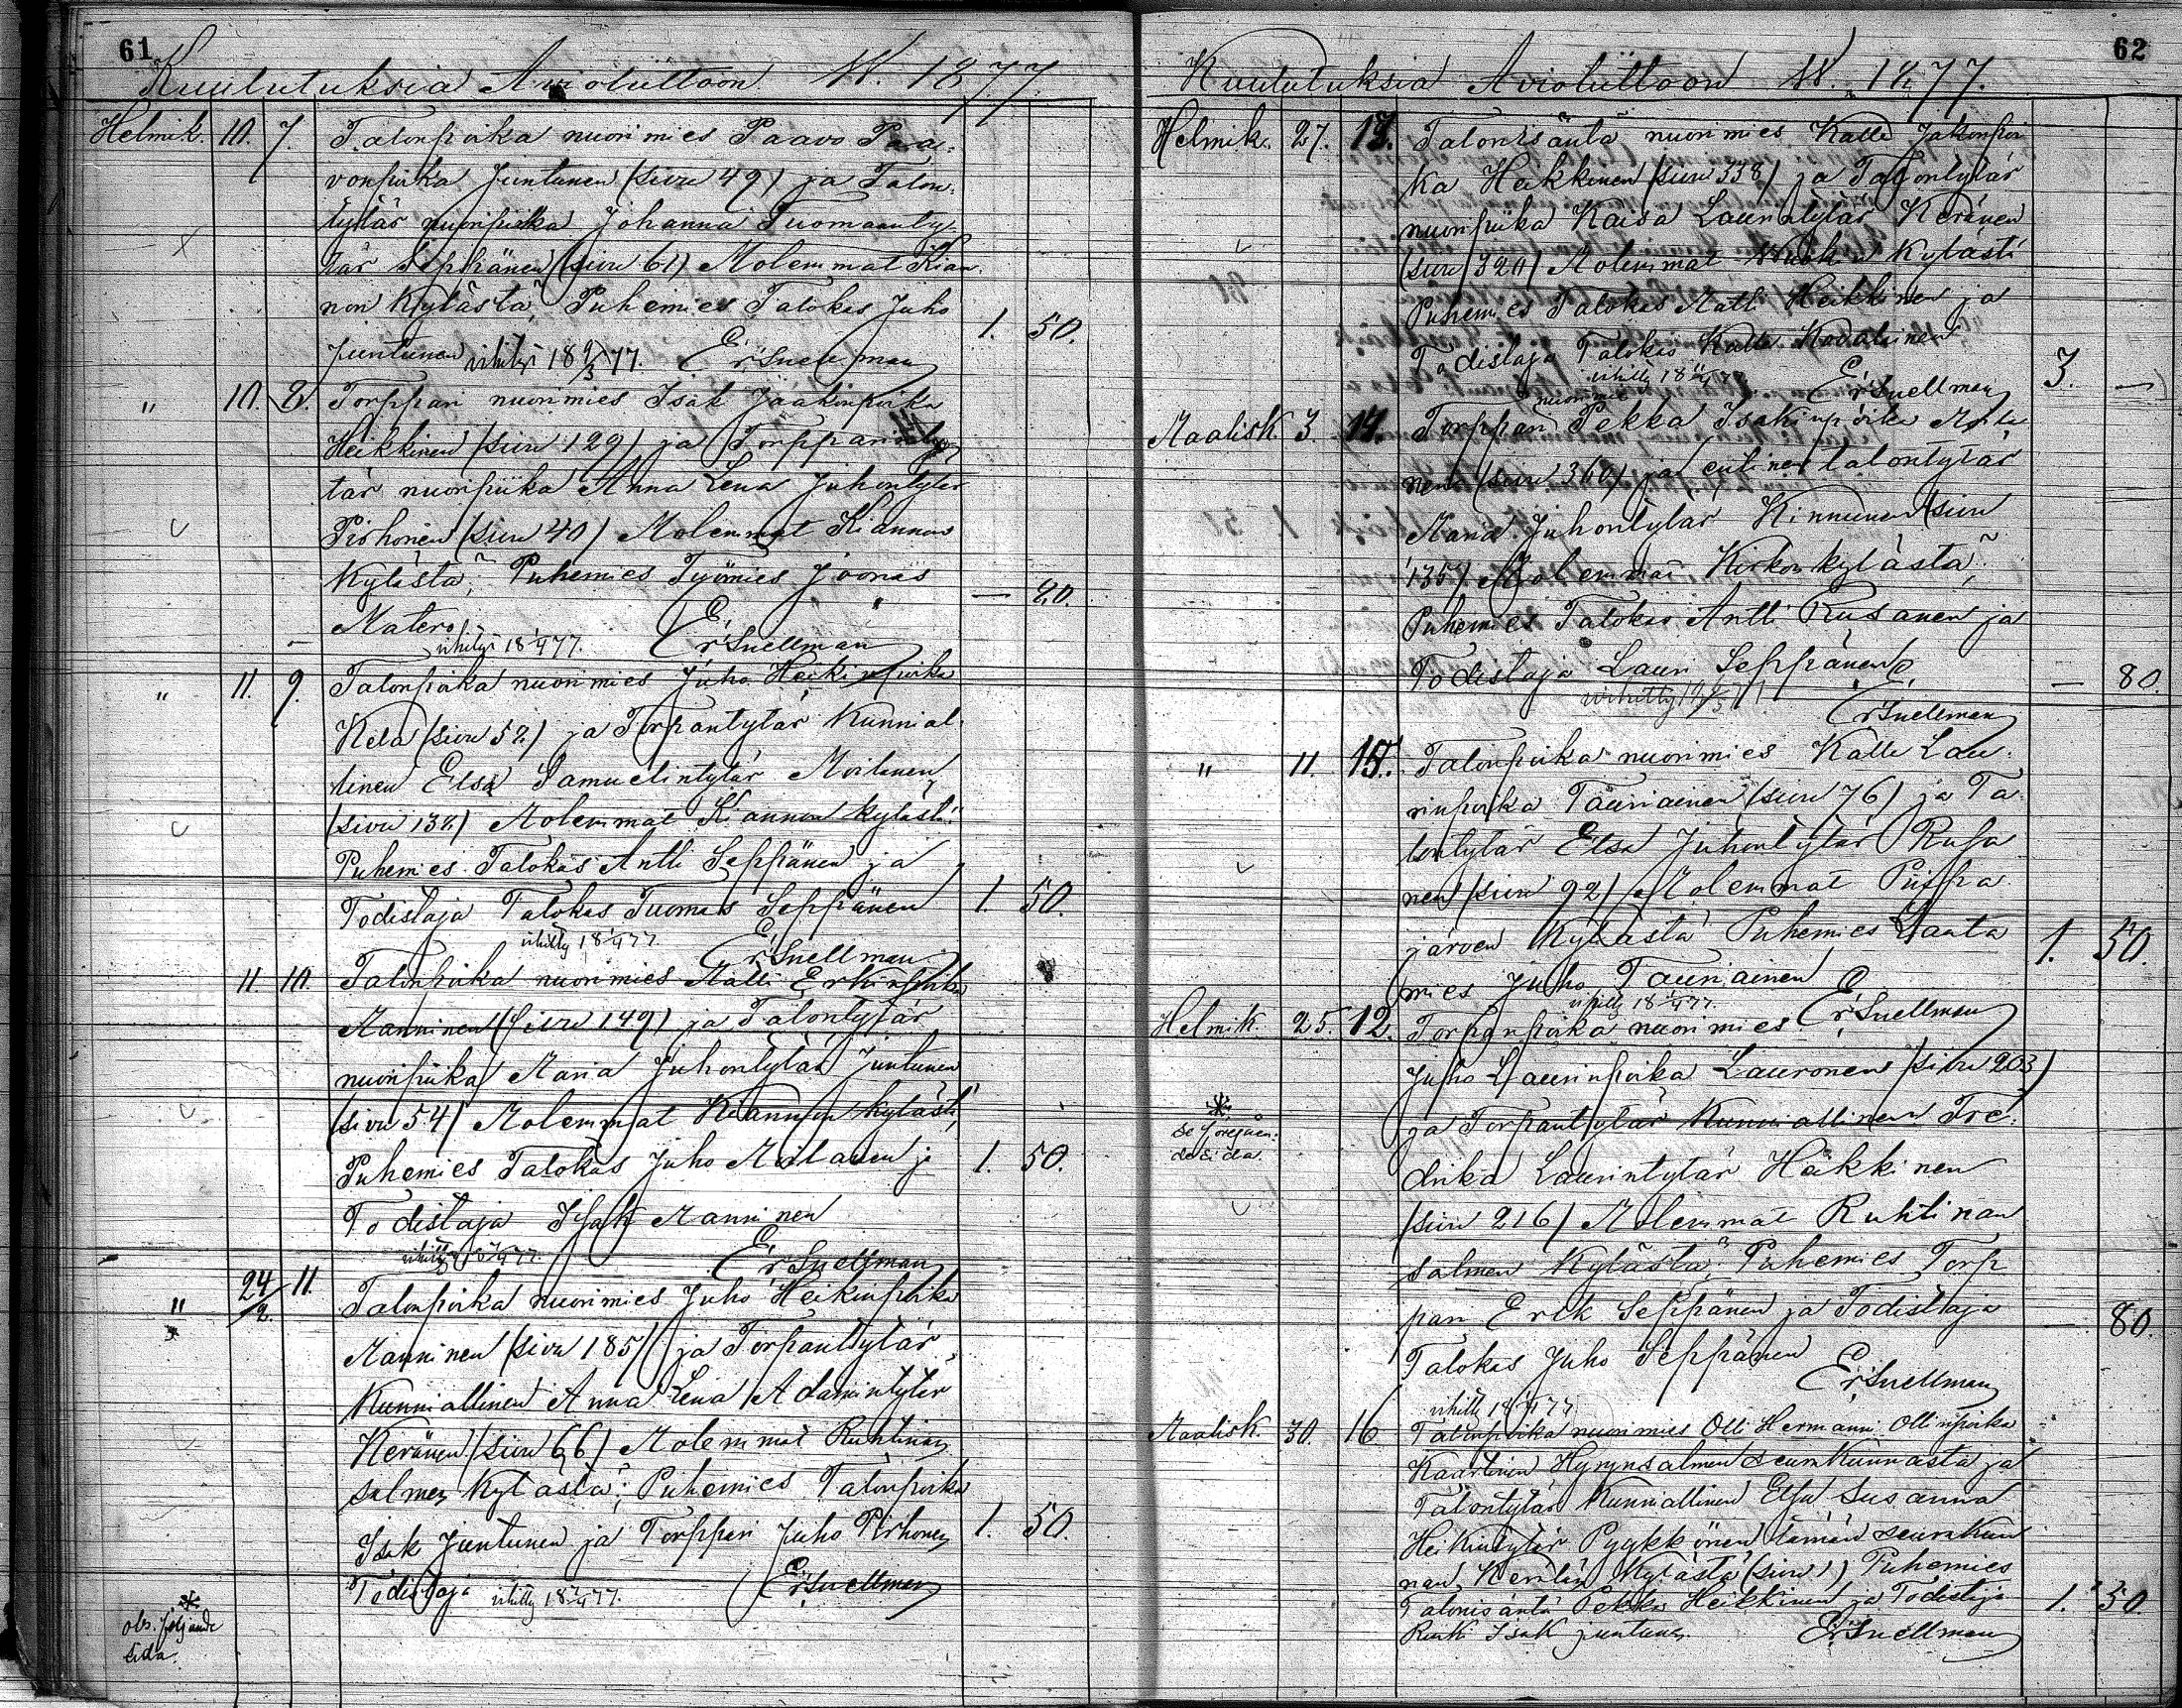 61
Kuulutuksia Avioliittoon W. 1877.
Helmik. 10. 7. Talonpoika nuorimies Paavo Paa-
vonpoika Juntunen (sivu 49) ja Talon-
tytär nuoripiika Johanna Tuomaanty-
tär Seppänen (sivu 61) Molemmat Kian-
non kylästä, Puhemies Talokas Juho 1. 50.
Juntunen vihityt 18 9/3 77. Er. Snellman
" 10. 8. Torppari nuorimies Isak Jaakinpoika
Heikkinen (sivu 129) ja Torpparin
tär nuoripiika Anna Lena Juhontytär
Pirhonen (sivu 40) Molemmat Kiannon
kylästä; Puhemies Työmies Joonas — 80.
Matero
vihityt 18 1/4 77. Er. Snellman
" 11. 9. Talonpoika nuorimies Juho Heikinpoika
Kela (sivu 52) ja Torpantytär Kunnial-
linen Elsa Samuelintytär Moilanen
(sivu 132) Molemmat Kiannon kylästä
Puhemies Talokas Antti Seppänen ja
Todistaja Talokas Tuomas Seppänen 1. 50.
vihitty 18 1/4 77. Er. Snellman
11. 10. Talonpoika nuorimies Matti Erkinpoika
Manninen (Sivu 149) ja Talontytär
nuoripiika Maria Juhontytär Juntunen
(sivu 54) Molemmat Kiannon kylästä,
Puhemies Talokas Juho Moilanen ja 1. 50.
Todistaja Isak Manninen
vihitty 18 /4 77. Er. Snellman
" 24/2. 11. Talonpoika nuorimies Juho Heikinpoika
Manninen (sivu 185) ja Torpantytär
Kunniallinen Anna Lena Adamintytär
Keränen (sivu 66) Molemmat Ruhtinan
salmen kylästä; Puhemies Talonpoika
Isak Juntunen ja Torppari Juho Pirhonen 1. 50.
Todistaja vihitty 18 /4 77. Er. Snellman
*
obs. följande
sida.
62
Kuulutuksia Avioliittoon W. 1877.
Helmik. 27. 13. Talonisäntä nuorimies Kalle Jakonpoi
ka Heikkinen (sivu 338) ja Talontytär
nuoripiika Kaisa Laurintytär Keränen
(sivu 320) Molemmat Wuokin kylästä
Puhemies Talokas Matti Heikkinen ja
Todistaja Talokas Kalle Kovalainen 3. —
vihitty 18 /4 77 Er. Snellman
nuorimies
Maalisk. 3. 14. Torppari Pekka Isakinpoika
nen (sivu 360) ja entinen talontytär
Maria Juhontytär Kinnunen (sivu
135) Molemmat Kirkonkylästä,
Puhemies Talokas Antti Rusanen ja
Todistaja Lauri Seppänen — 80.
vihitty Er. Snellman
" 11. 15. Talonpoika nuorimies Kalle Lau-
rinpoika Tauriainen (sivu 76) ja Ta
lontytär Elsa Juhontytär Rusa
nen (sivu 92) Molemmat Piispa
järven kylästä Puhemies Lauta
mies Juho Tauriainen 1. 50.
vihitty 18 1/4 77. Er. Snellman
Helmik. 25. 12. Torpanpoika nuorimies
Juho Laurinpoika Lauronen (sivu 203)
ja Torpantytär Kunniallinen Fre-
drika Laurintytär Häkkinen
(sivu 216) Molemmat Ruhtinan
salmen kylästä, Puhemies Torp
pari Erik Seppänen ja Todistaja — 80.
Talokas Juho Seppänen
vihitty 18 /4 77 Er. Snellman
*
se föregåen-
de sida.
Maalisk. 30. 16 Talonpoika nuorimies Olli Hermanni Ollinpoika
Kaartinen Hyrynsalmen seurakunnasta ja
Talontytär Kunniallinen Elsa Susanna
Heikintytär Pyykkönen tämän seurakun
nan Kerälän kylästä (sivu 1) Puhemies
Talonisäntä Pekka Heikkinen ja Todistaja 1. 50.
Renki Isak Juntunen. Er. Snellman